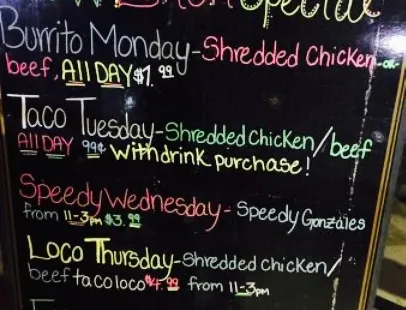 Special
Burrito Monday-Shredded Chicken-or-
beef, All DAY $1.99
Taco Tuesday-Shredded Chicken/beef
All DAY 99¢ with drink purchase!
Speedy Wednesday- Speedy Gonzales
from 11-3pm $3.99
Loco Thursday-Shredded Chicken/
beef taco loco $4.99 from 11-3pm